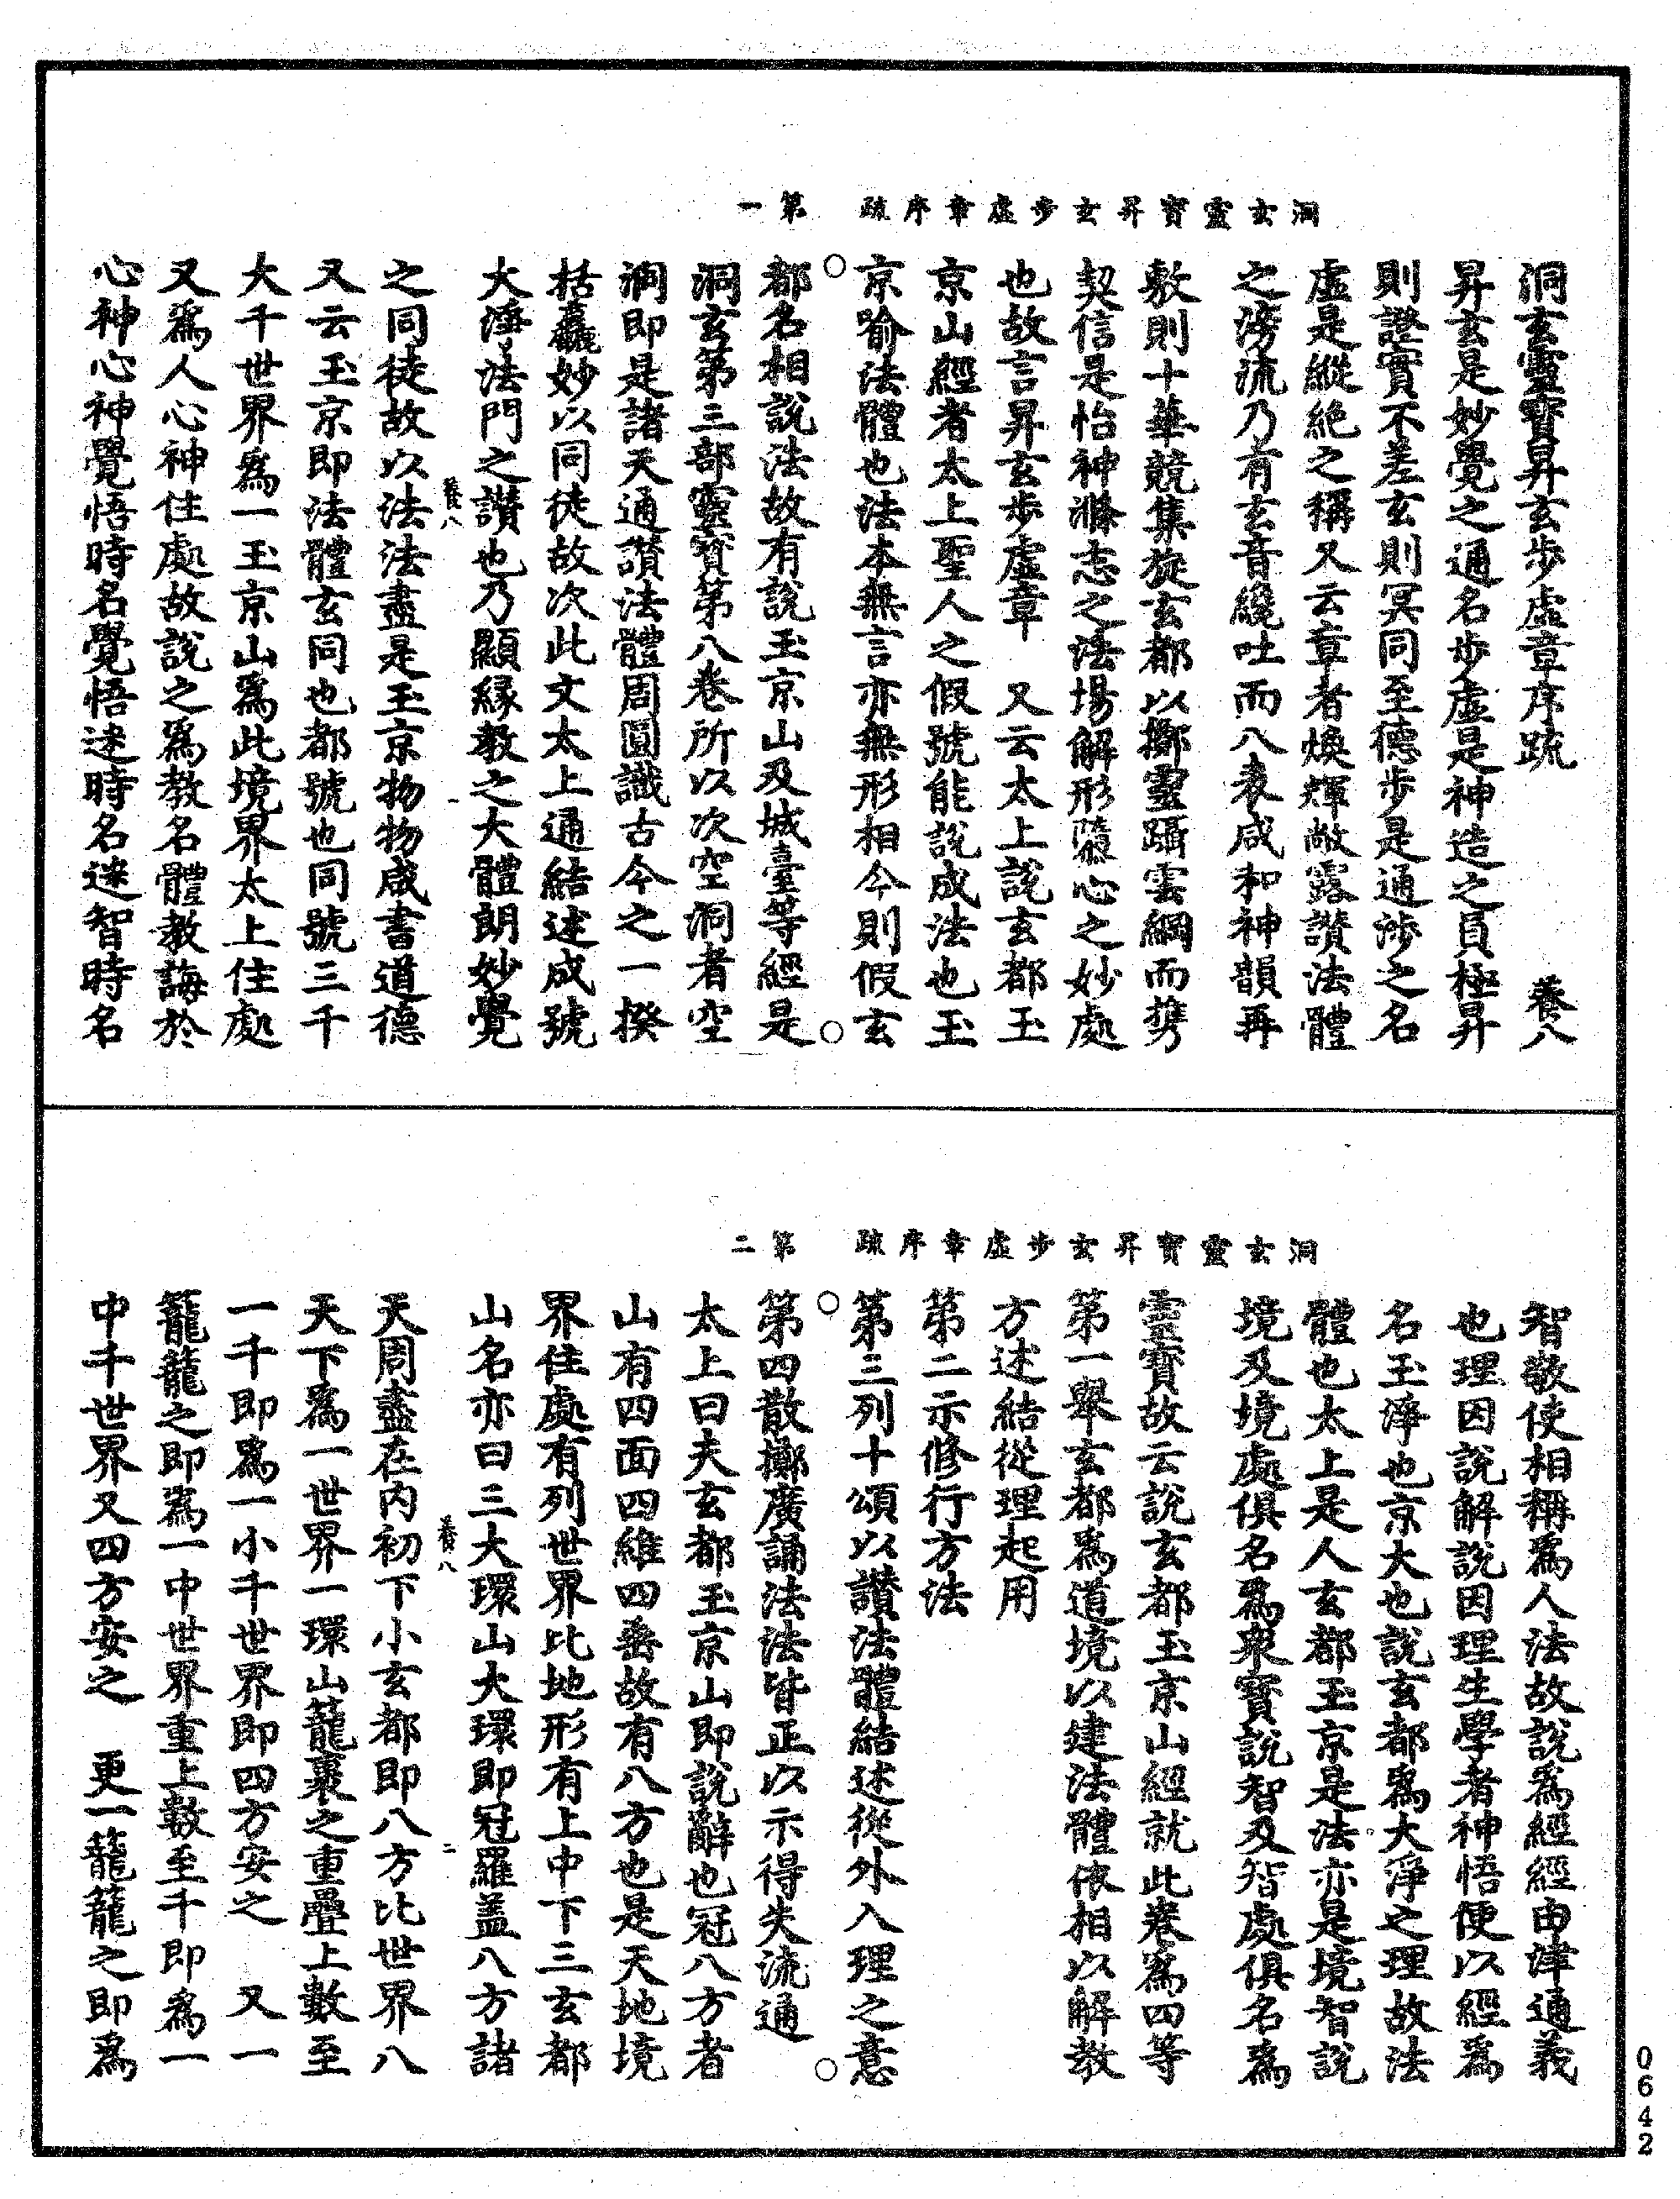 洞玄靈寶昇玄步虛章序疏　第一
洞玄靈寶昇玄步虛章序疏　養八
昇玄是妙覺之通名步虛是神造之員極昇
則證實不差玄則冥同至德步是通涉之名
虛是縱絶之稱又云章者煥輝敞露讚法體
之滂流乃有玄音纔吐而八表咸和神韻再
敷則十華競集旋玄都以擲靈躡雲綱而携
契信是怡神滌志之法場解形隳心之妙處
也故言昇玄步虛章　又云太上說玄都玉
京山經者太上聖人之假號能說成法也玉
京喻法體也法本無言亦無形相今則假玄
都名相說法故有說玉京山及城臺等經是
洞玄第三部靈寶第八卷所以次空洞者空
洞即是諸天通讚法體周圓識古今之一揆
括麤妙以同徒故次此文太上通結述成號
大淨法門之讚也乃顯緣教之大體朗妙覺
養八　一
之同徒故以法法盡是玉京物物咸書道德
又云玉京即法體玄同也都號也同號三千
大千世界爲一玉京山爲此境界太上住處
又爲人心神住處故說之爲教名體教誨於
心神心神覺悟時名覺悟迷時名迷智時名
洞玄靈寶昇玄步虛章序疏　第二
智敬使相稱爲人法故說爲經經由津通義
也理因說解說因理生學者神悟便以經爲
名玉淨也京大也說玄都爲大淨之理故法
體也太上是人玄都玉京是法亦是境智說
境及境處俱名爲衆寶說智及智處俱名爲
靈寶故云說玄都玉京山經就此卷爲四等
第一舉玄都爲道境以建法體依相以解教
方述結從理起用
第二示修行方法
第三列十頌以讚法體結述從外入理之意
第四散擲廣誦法法皆正以示得失流通
太上曰夫玄都玉京山即說辭也冠八方者
山有四面四維四垂故有八方也是天地境
界住處有列世界比地形有上中下三玄都
山名亦曰三大環山大環即冠羅蓋八方諸
養八　二
天周盡在内初下小玄都即八方比世界八
天下爲一世界一環山籠裹之重疊上數至
一千即爲一小千世界即四方安之　又一
籠籠之即爲一中世界重上數至千即爲一
中千世界又四方安之　更一籠籠之即爲
0642